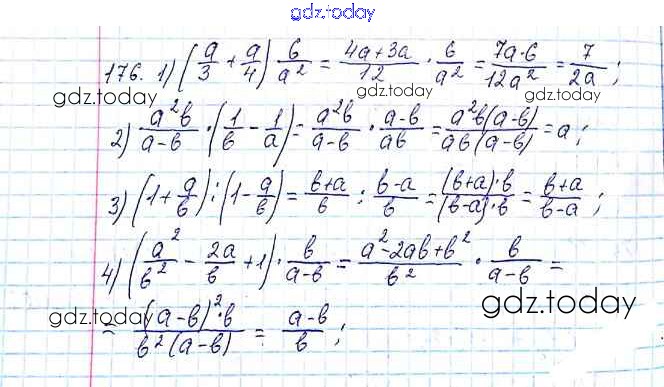 gdz.today
176. 1) (a/3 + a/4) 6/a² = (4a+3a)/12 · 6/a² = 7a·6/12a² = 7/2a ;
gdz.today gdz.today
2) a²b/(a-b) · (1/b - 1/a) = a²b/(a-b) · (a-b)/ab = a²b(a-b)/ab(a-b) = a ;
3) (1 + a/b) : (1 - a/b) = (b+a)/b : (b-a)/b = (b+a)·b/(b-a)·b = (b+a)/(b-a) ;
4) (a²/b² - 2a/b + 1) · b/(a-b) = (a²-2ab+b²)/b² · b/(a-b) =
= (a-b)²·b/b²(a-b) = (a-b)/b ;
gdz.today gdz.today